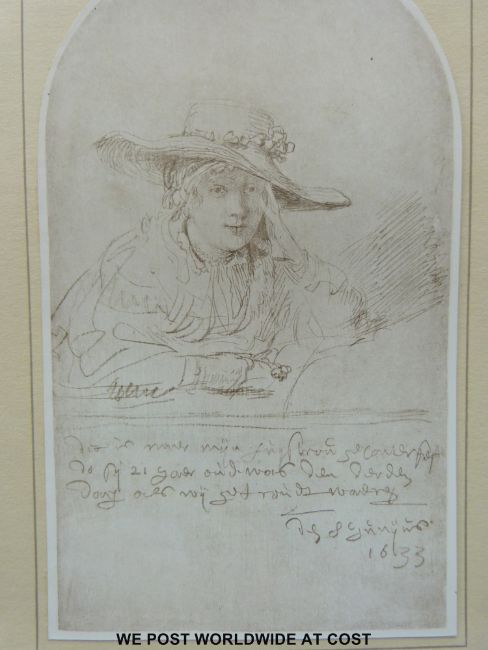 dit is naer mijn huysvrou geconterfeyt
do sy 21 jaer oud was den derden
dach als wij getroudt waeren
den 8 junijus
1633
WE POST WORLDWIDE AT COST